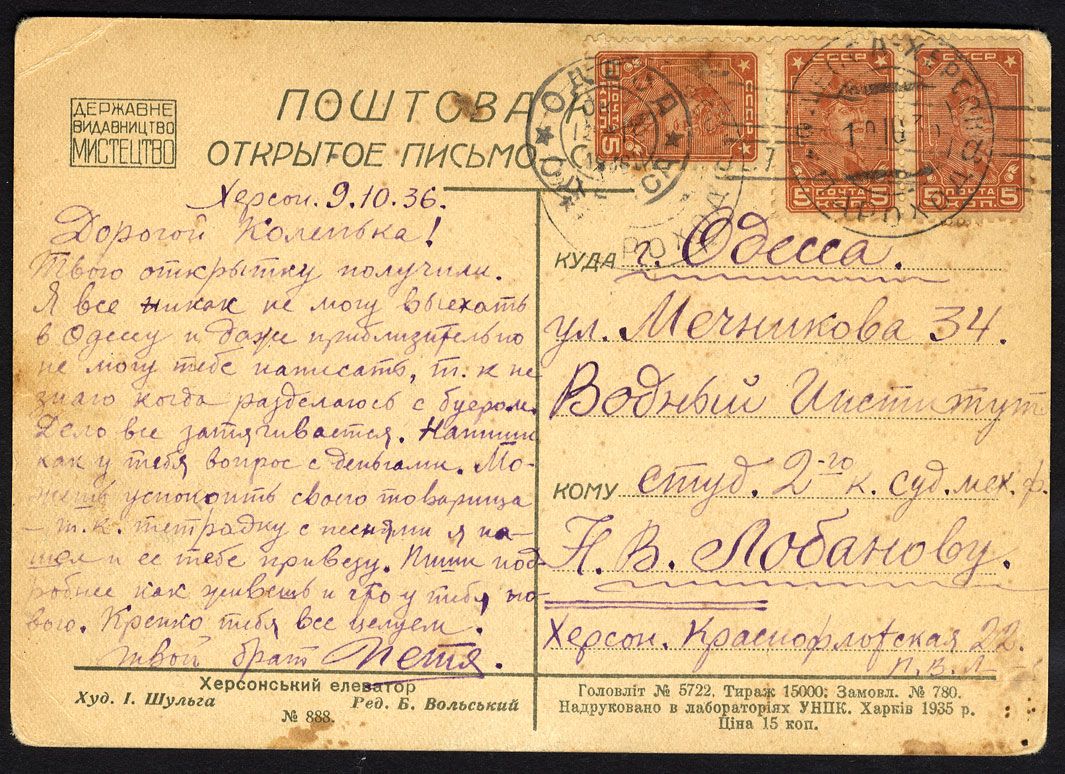 ДЕРЖАВНЕ
ВИДАВНИЦТВО
МИСТЕЦТВО
ПОШТОВА
ОТКРЫТОЕ ПИСЬМО
Херсон. 9.10.36.
Дорогой Коленька!
Твою открытку получили.
Я все никак не могу выехать
в Одессу и даже приблизительно
не могу тебе написать, т.к не
знаю когда разделаюсь с буером.
Дело все затягивается. Напиши
как у тебя вопрос с деньгами. Мо-
жешь успокоить своего товарища
– т.к. тетрадку с песнями я на-
шел и ее тебе привезу. Пиши под
робнее как живешь и что у тебя но-
вого. Крепко тебя все целуем.
твой брат Петя.
Херсонський елеватор
Худ. І. Шульга Ред. Б. Вольський
№ 888.
СССР
ПОЧТА
5 КОП. 5
СССР
ПОЧТА
5 КОП. 5
СССР
ПОЧТА
5 КОП. 5
ОДЕССА
КУДА г. Одесса.
ул. Мечникова 34.
Водный Институт
КОМУ студ. 2-го к. суд. мех. ф.
Н. В. Лобанову.
Херсон. Краснофлотская 22.
П. В. Л
Головліт № 5722. Тираж 15000. Замовл. № 780.
Надруковано в лабораторіях УНПК. Харків 1935 р.
Ціна 15 коп.